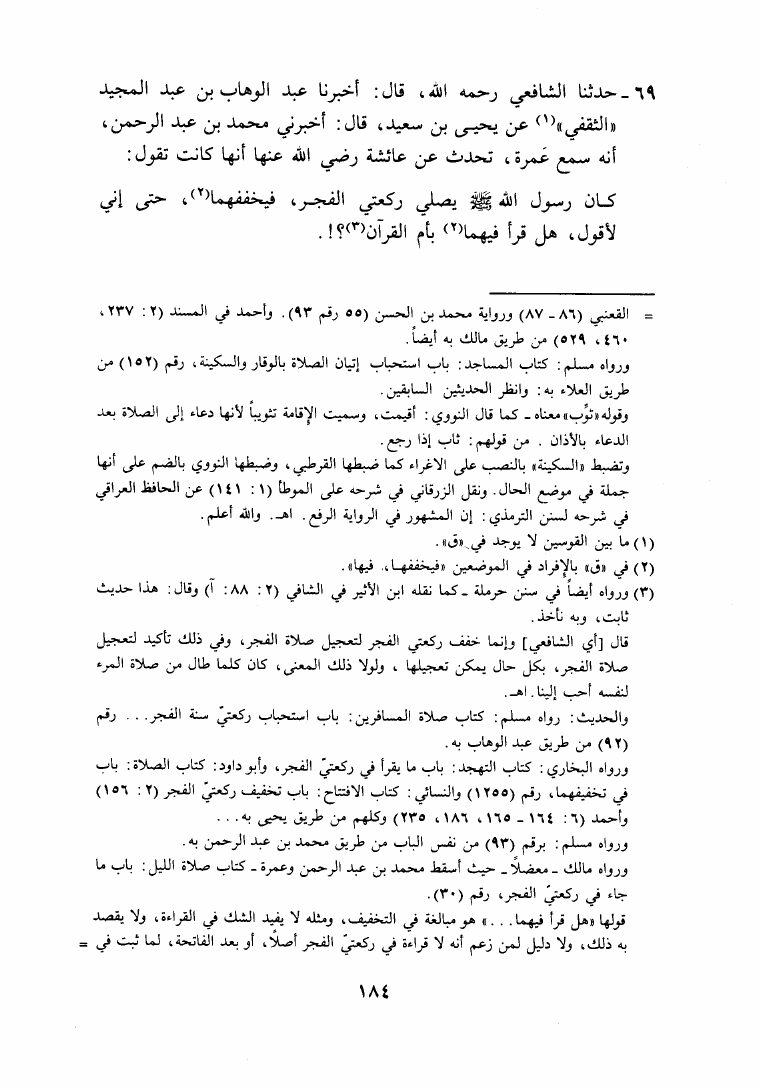 ٦٩ - حدثنا الشافعي رحمه الله، قال: أخبرنا عبد الوهاب بن عبد المجيد
«الثقفي»(١) عن يحيى بن سعيد، قال: أخبرني محمد بن عبد الرحمن،
أنه سمع عَمرة، تحدث عن عائشة رضي الله عنها أنها كانت تقول:
كان رسول الله ﷺ يصلي ركعتي الفجر، فيخففهما(٢)، حتى إني
لأقول، هل قرأ فيهما(٢) بأم القرآن(٣)؟!.
= القعنبي (٨٦ - ٨٧) ورواية محمد بن الحسن (٥٥ رقم ٩٣). وأحمد في المسند (٢: ٢٣٧،
٤٦٠، ٥٢٩) من طريق مالك به أيضاً.
ورواه مسلم: كتاب المساجد: باب استحباب إتيان الصلاة بالوقار والسكينة، رقم (١٥٢) من
طريق العلاء به: وانظر الحديثين السابقين.
وقوله «ثوِّب» معناه - كما قال النووي: أقيمت، وسميت الإقامة تثويباً لأنها دعاء إلى الصلاة بعد
الدعاء بالأذان . من قولهم: ثاب إذا رجع.
وتضبط «السكينة» بالنصب على الاغراء كما ضبطها القرطبي، وضبطها النووي بالضم على أنها
جملة في موضع الحال. ونقل الزرقاني في شرحه على الموطأ (١: ١٤١) عن الحافظ العراقي
في شرحه لسنن الترمذي: إن المشهور في الرواية الرفع. اهـ. والله أعلم.
(١) ما بين القوسين لا يوجد في «ق».
(٢) في «ق» بالإفراد في الموضعين «فيخففهـا، فيها».
(٣) ورواه أيضاً في سنن حرملة - كما نقله ابن الأثير في الشافي (٢: ٨٨: آ) وقال: هذا حديث
ثابت، وبه نأخذ.
قال [أي الشافعي] وإنما خفف ركعتي الفجر لتعجيل صلاة الفجر، وفي ذلك تأكيد لتعجيل
صلاة الفجر، بكل حال يمكن تعجيلها ، ولولا ذلك المعنى، كان كلما طال من صلاة المرء
لنفسه أحب إلينا. اهـ.
والحديث: رواه مسلم: كتاب صلاة المسافرين: باب استحباب ركعتيّ سنة الفجر... رقم
(٩٢) من طريق عبد الوهاب به.
ورواه البخاري: كتاب التهجد: باب ما يقرأ في ركعتيّ الفجر، وأبو داود: كتاب الصلاة: باب
في تخفيفهما، رقم (١٢٥٥) والنسائي: كتاب الافتتاح: باب تخفيف ركعتيّ الفجر (٢: ١٥٦)
وأحمد (٦: ١٦٤ - ١٦٥، ١٨٦، ٢٣٥) وكلهم من طريق يحيى به...
ورواه مسلم: برقم (٩٣) من نفس الباب من طريق محمد بن عبد الرحمن به.
ورواه مالك - معضلاً - حيث أسقط محمد بن عبد الرحمن وعمرة - كتاب صلاة الليل: باب ما
جاء في ركعتيّ الفجر، رقم (٣٠).
قولها «هل قرأ فيهما...» هو مبالغة في التخفيف، ومثله لا يفيد الشك في القراءة، ولا يقصد
به ذلك، ولا دليل لمن زعم أنه لا قراءة في ركعتيّ الفجر أصلاً، أو بعد الفاتحة، لما ثبت في =
١٨٤